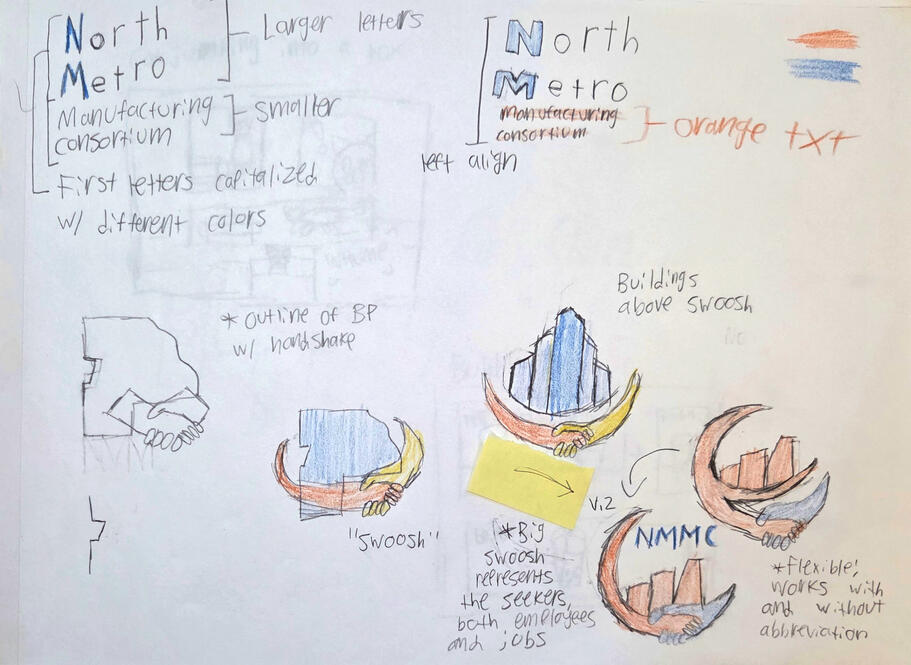 North
Metro
Manufacturing
consortium
Larger letters
smaller
First letters capitalized
w/ different colors
North
Metro
Manufacturing
consortium
orange txt
left align
* outline of BP
w/ handshake
"swoosh"
Buildings
above swoosh
V.2
*Big
swoosh
represents
the seekers,
both employees
and jobs
NMMC
*flexible!
works with
and without
abbreviation